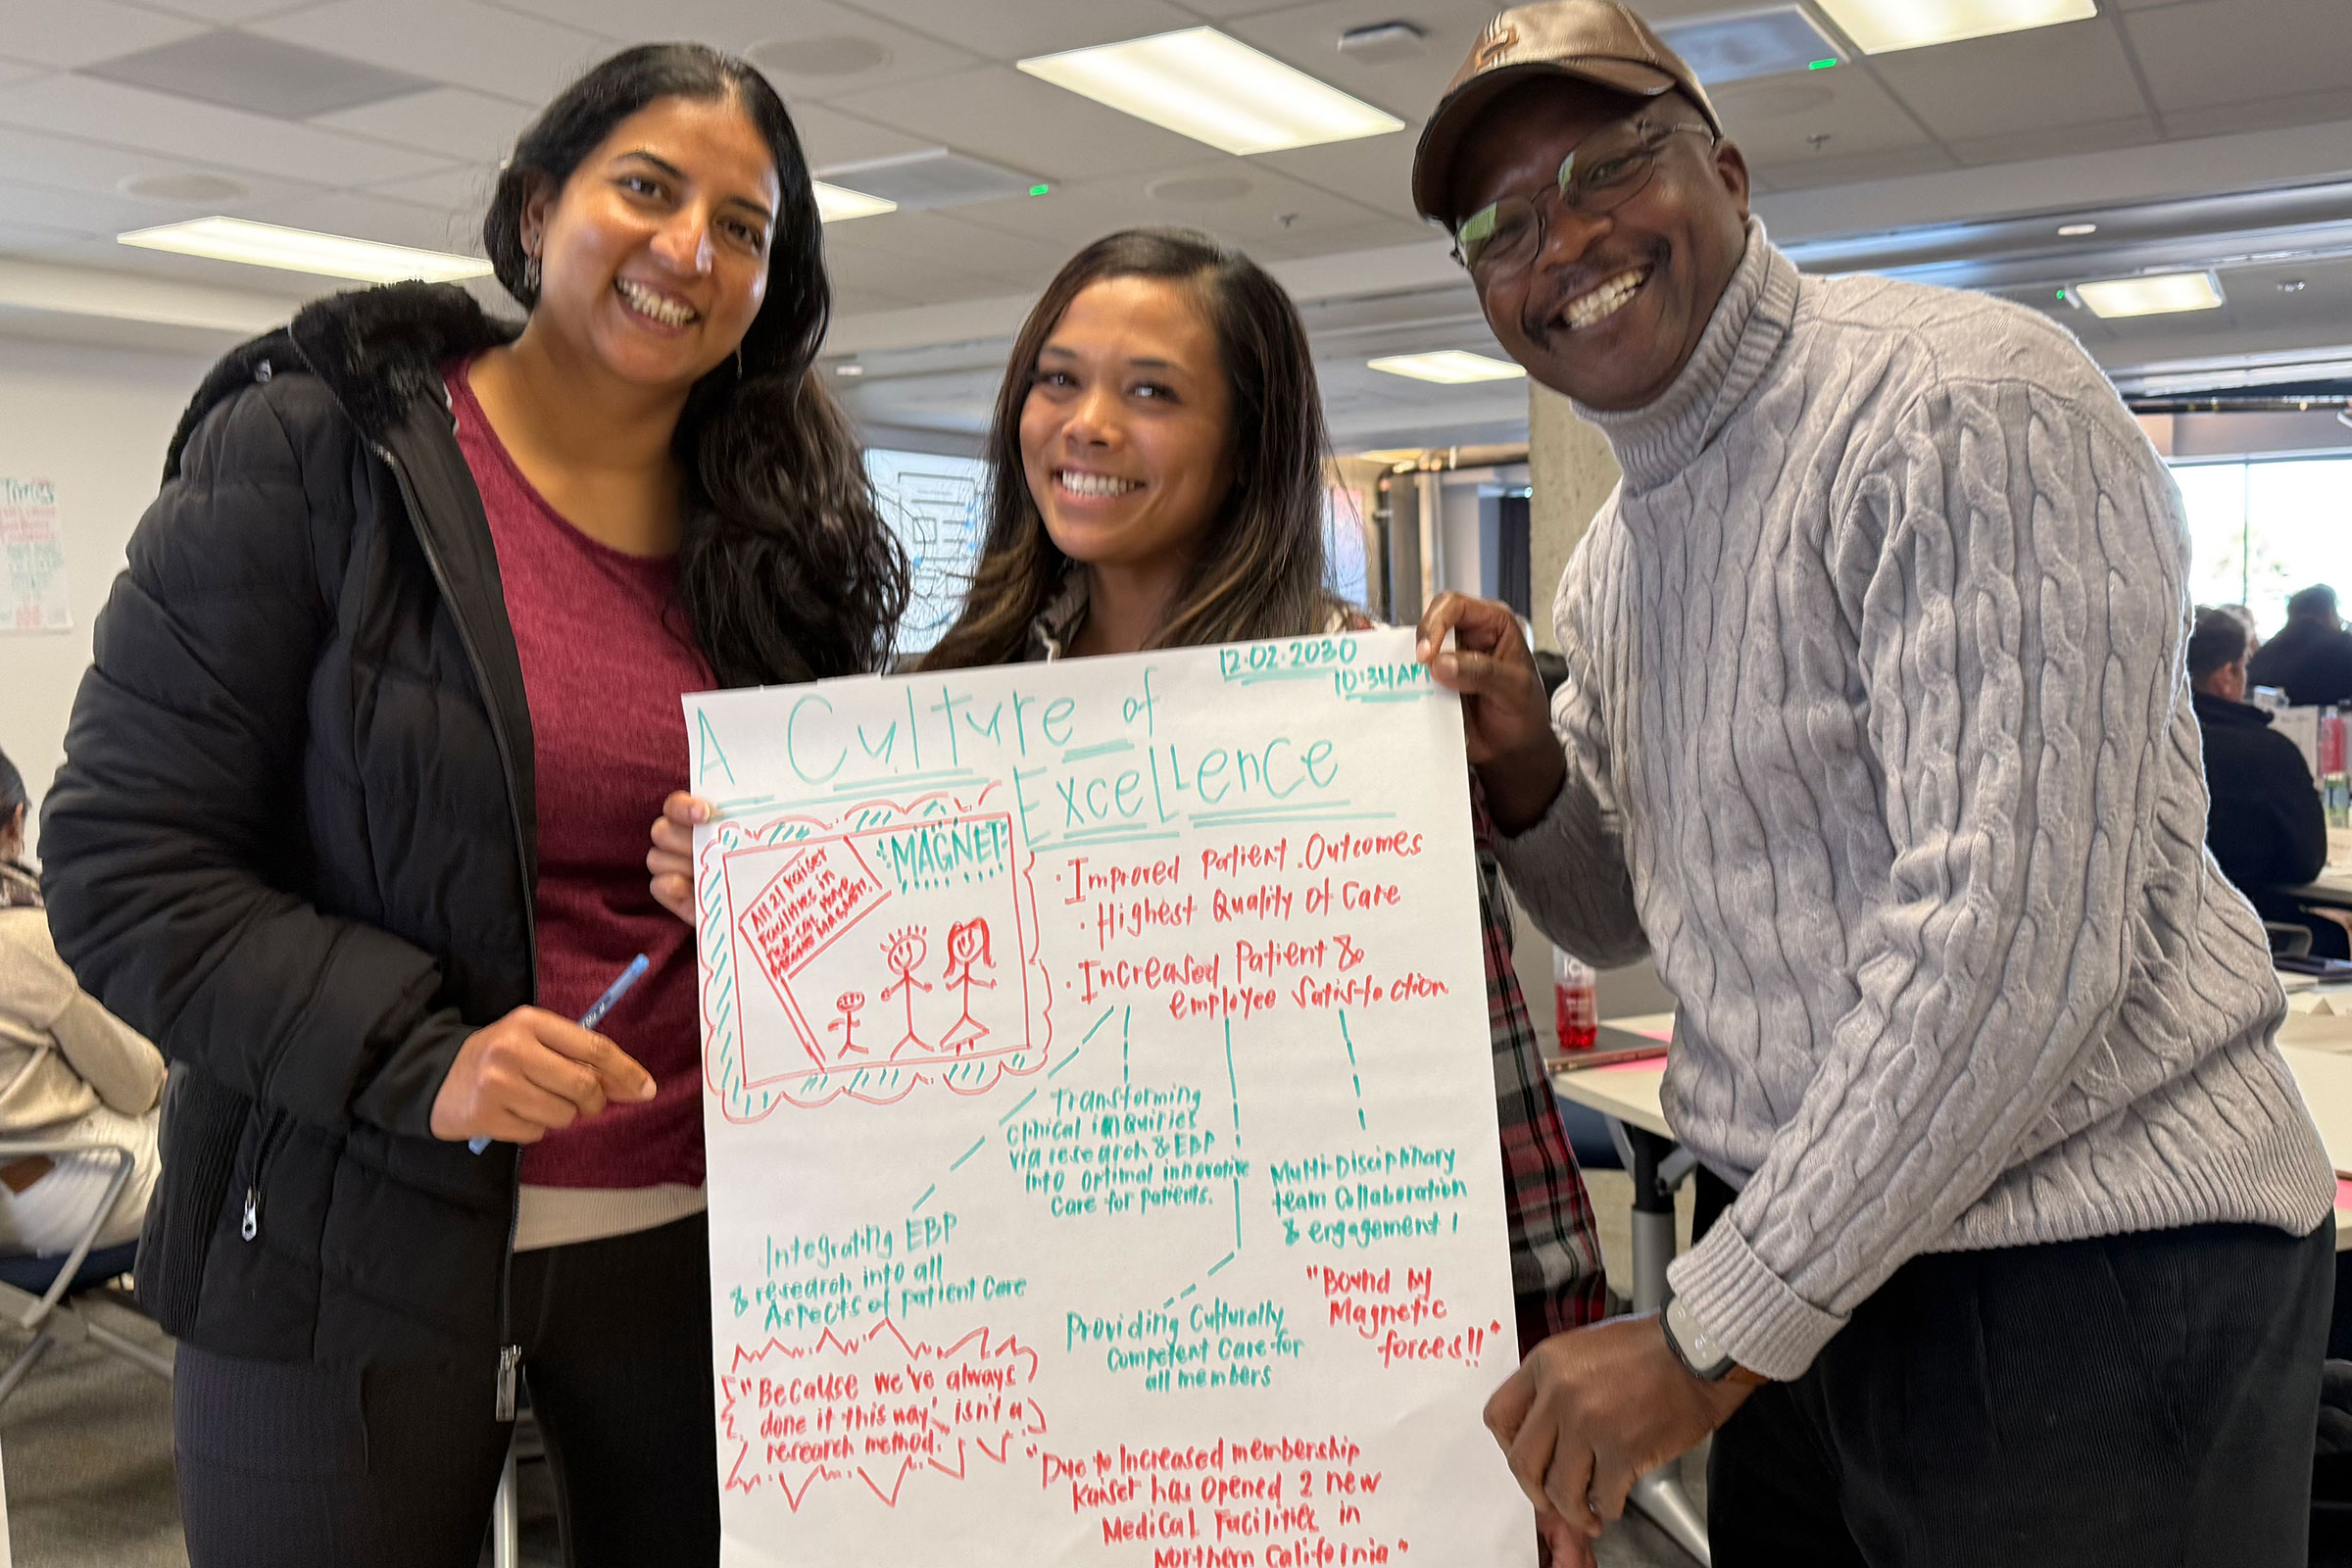 12.02.2030
10:34AM
A Culture of
Excellence
MAGNET
All 21 Kaiser
Facilities in
have
· Improved Patient Outcomes
· Highest Quality of Care
· Increased Patient &
employee satisfaction
Transforming
clinical inquiries
via research & EBP
into optimal innovative
care for patients.
Multi-Disciplinary
team collaboration
& engagement !
Integrating EBP
& research into all
Aspects of patient care
Providing Culturally
Competent Care for
all members
"Bound by
Magnetic
forces!!"
"Because we've always
done it this way' isn't a
research method."
"Due to increased membership
Kaiser has opened 2 new
Medical Facilities in
Northern California"